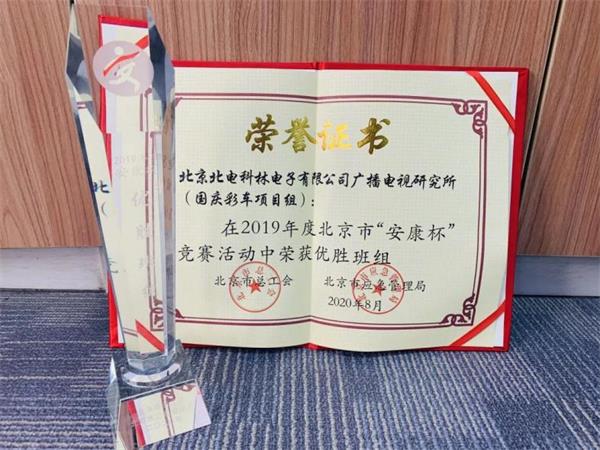 荣誉证书
北京北电科林电子有限公司广播电视研究所
（国庆彩车项目组）：
在2019年度北京市“安康杯”
竞赛活动中荣获优胜班组
北京市总工会 北京市应急管理局
2020年8月
北京市总工会
北京市应急管理局
安
2019
安康杯
优胜班组